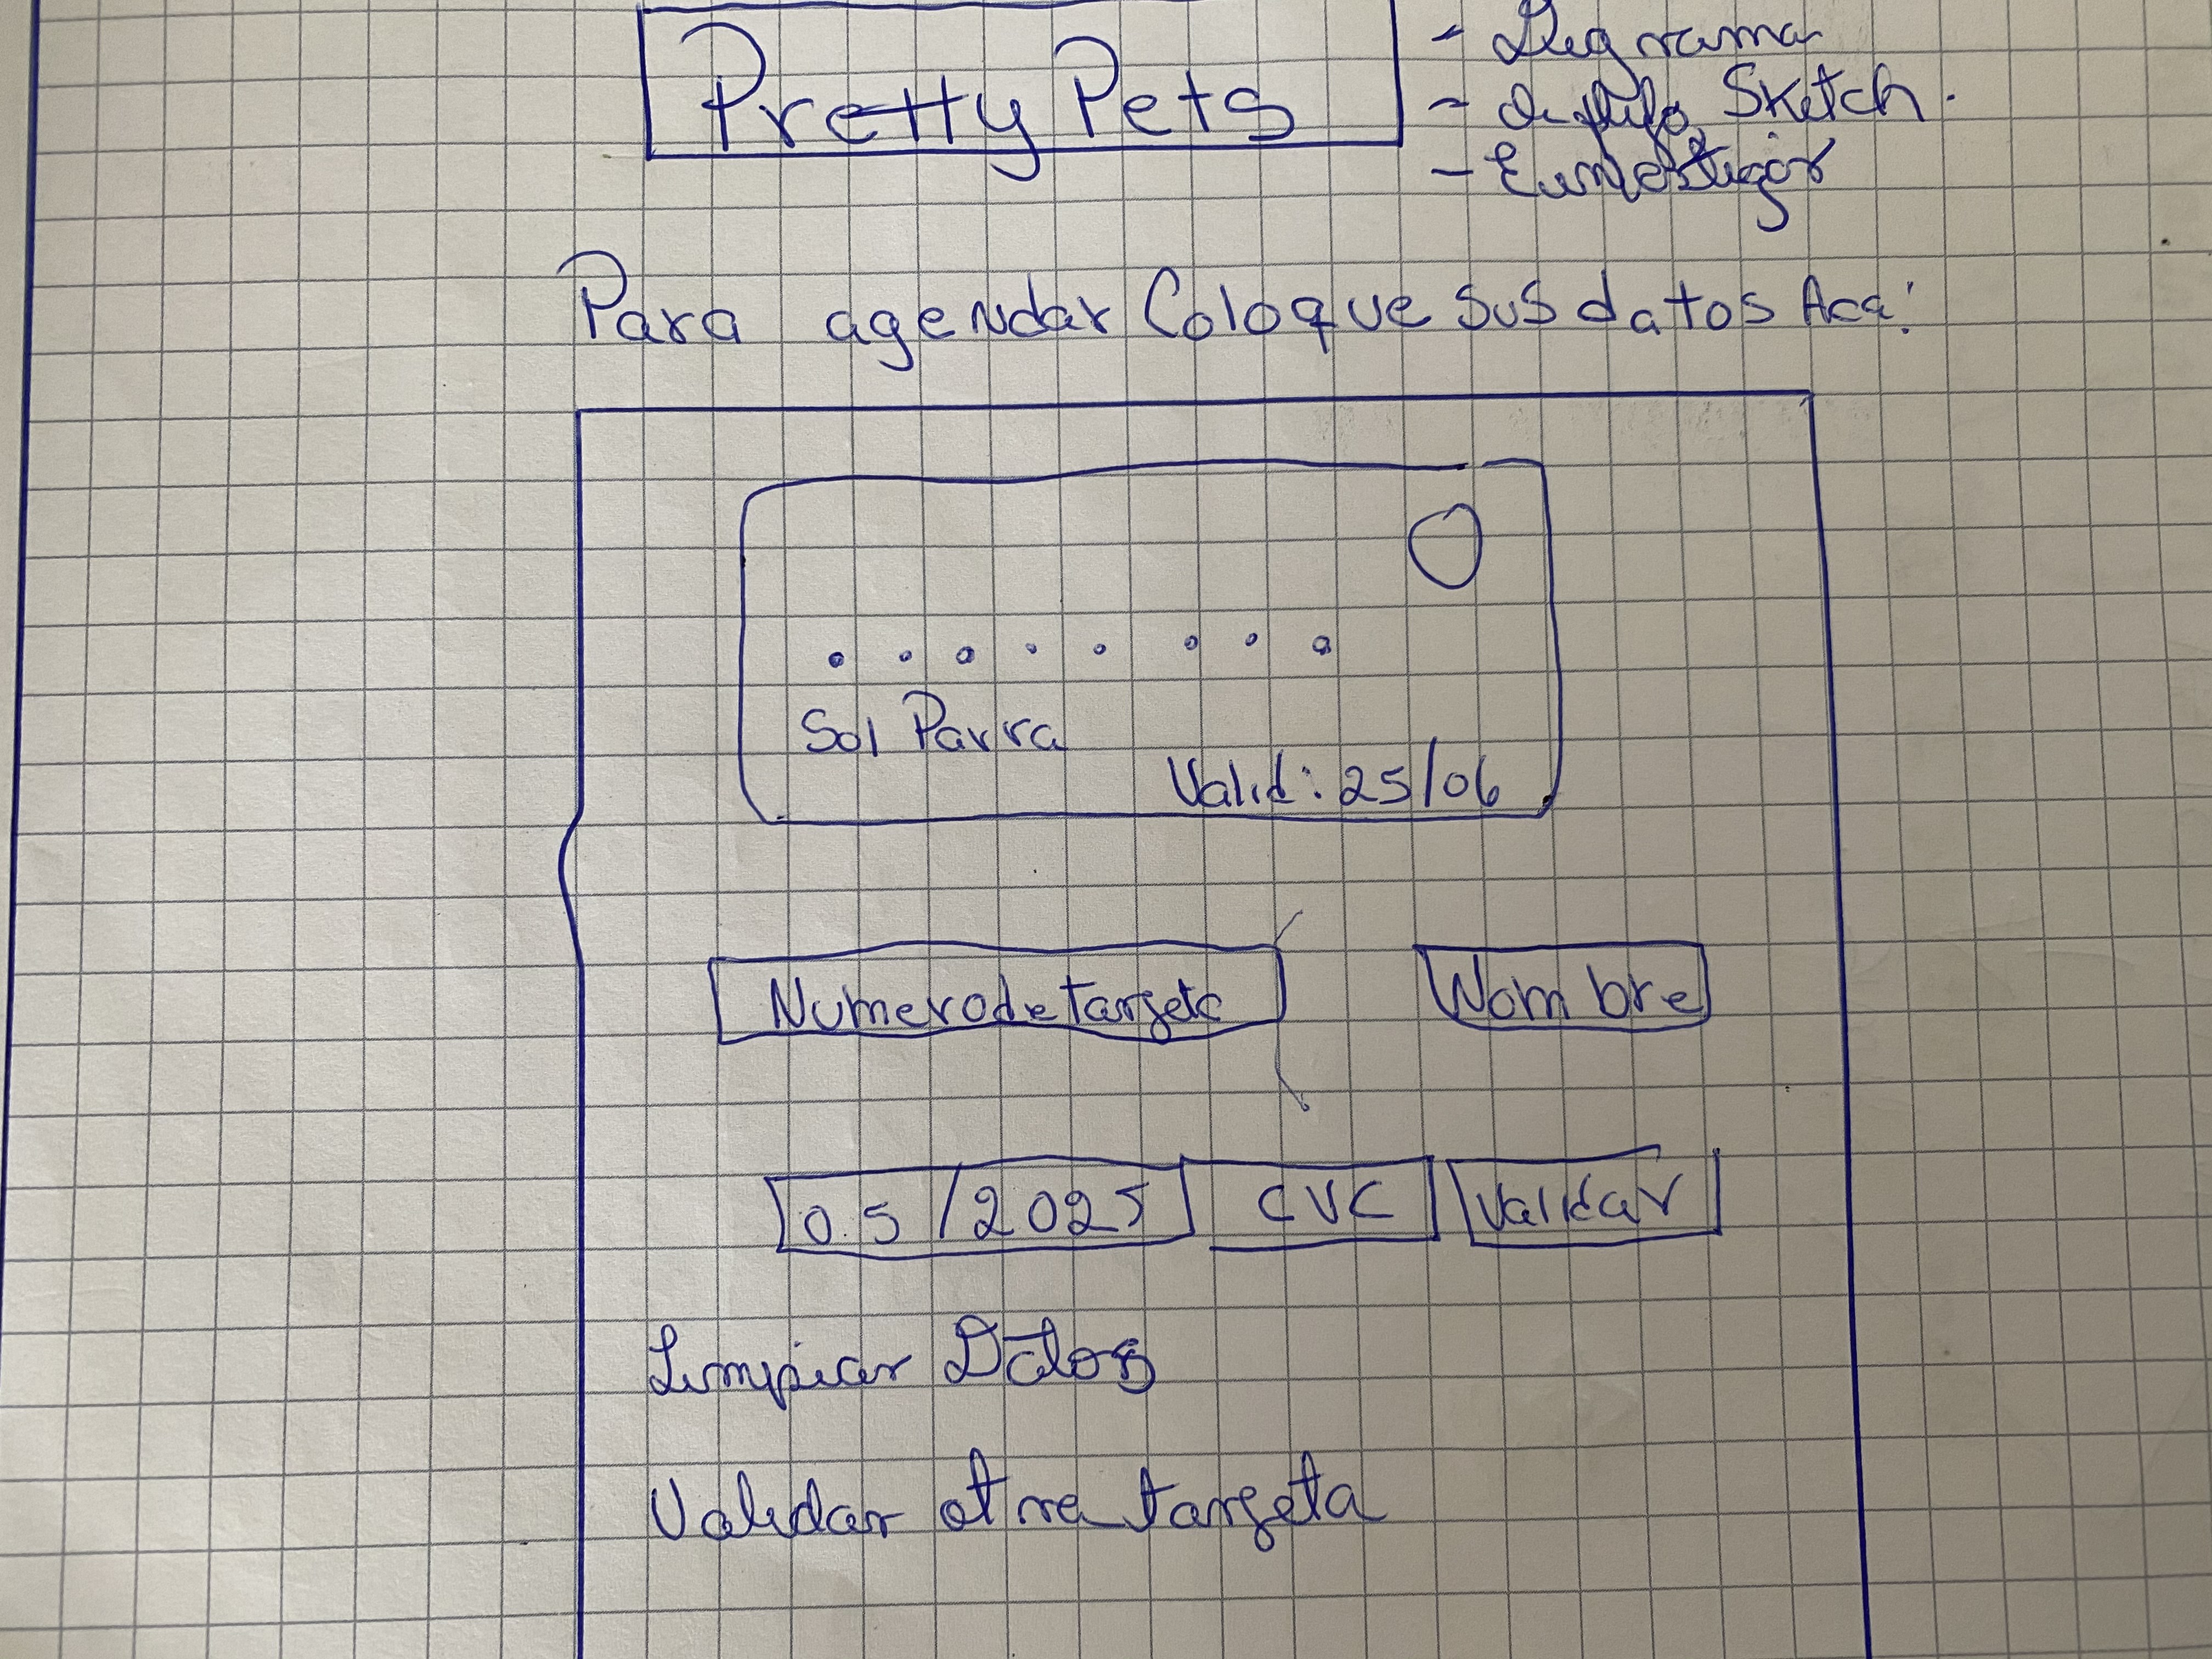 Pretty Pets
- Diagrama
- Sketch.
-
Para agendar Coloque sus datos Acá:
Sol Parra
Valid: 25/06
Numero de targeta
Nombre
05/2025
CVC
Validar
Limpiar Datos
Validar otra targeta